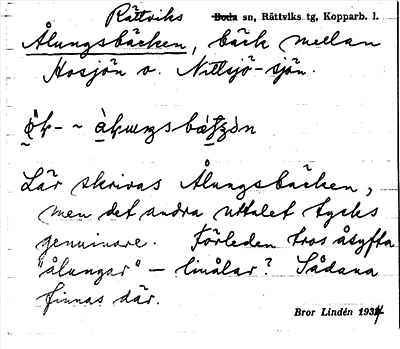 Rättviks Boda sn, Rättviks tg, Kopparb. l.
Ålungsbäcken, bäck mellan
Hosjön o. Nittsjö-sjön.
Lär skrivas Ålungsbäcken,
men det andra uttalet tycks
genuinare. Förleden tros åsyfta
"ålungar" – linålar? Sådana
finnas där.
Bror Lindén 1934